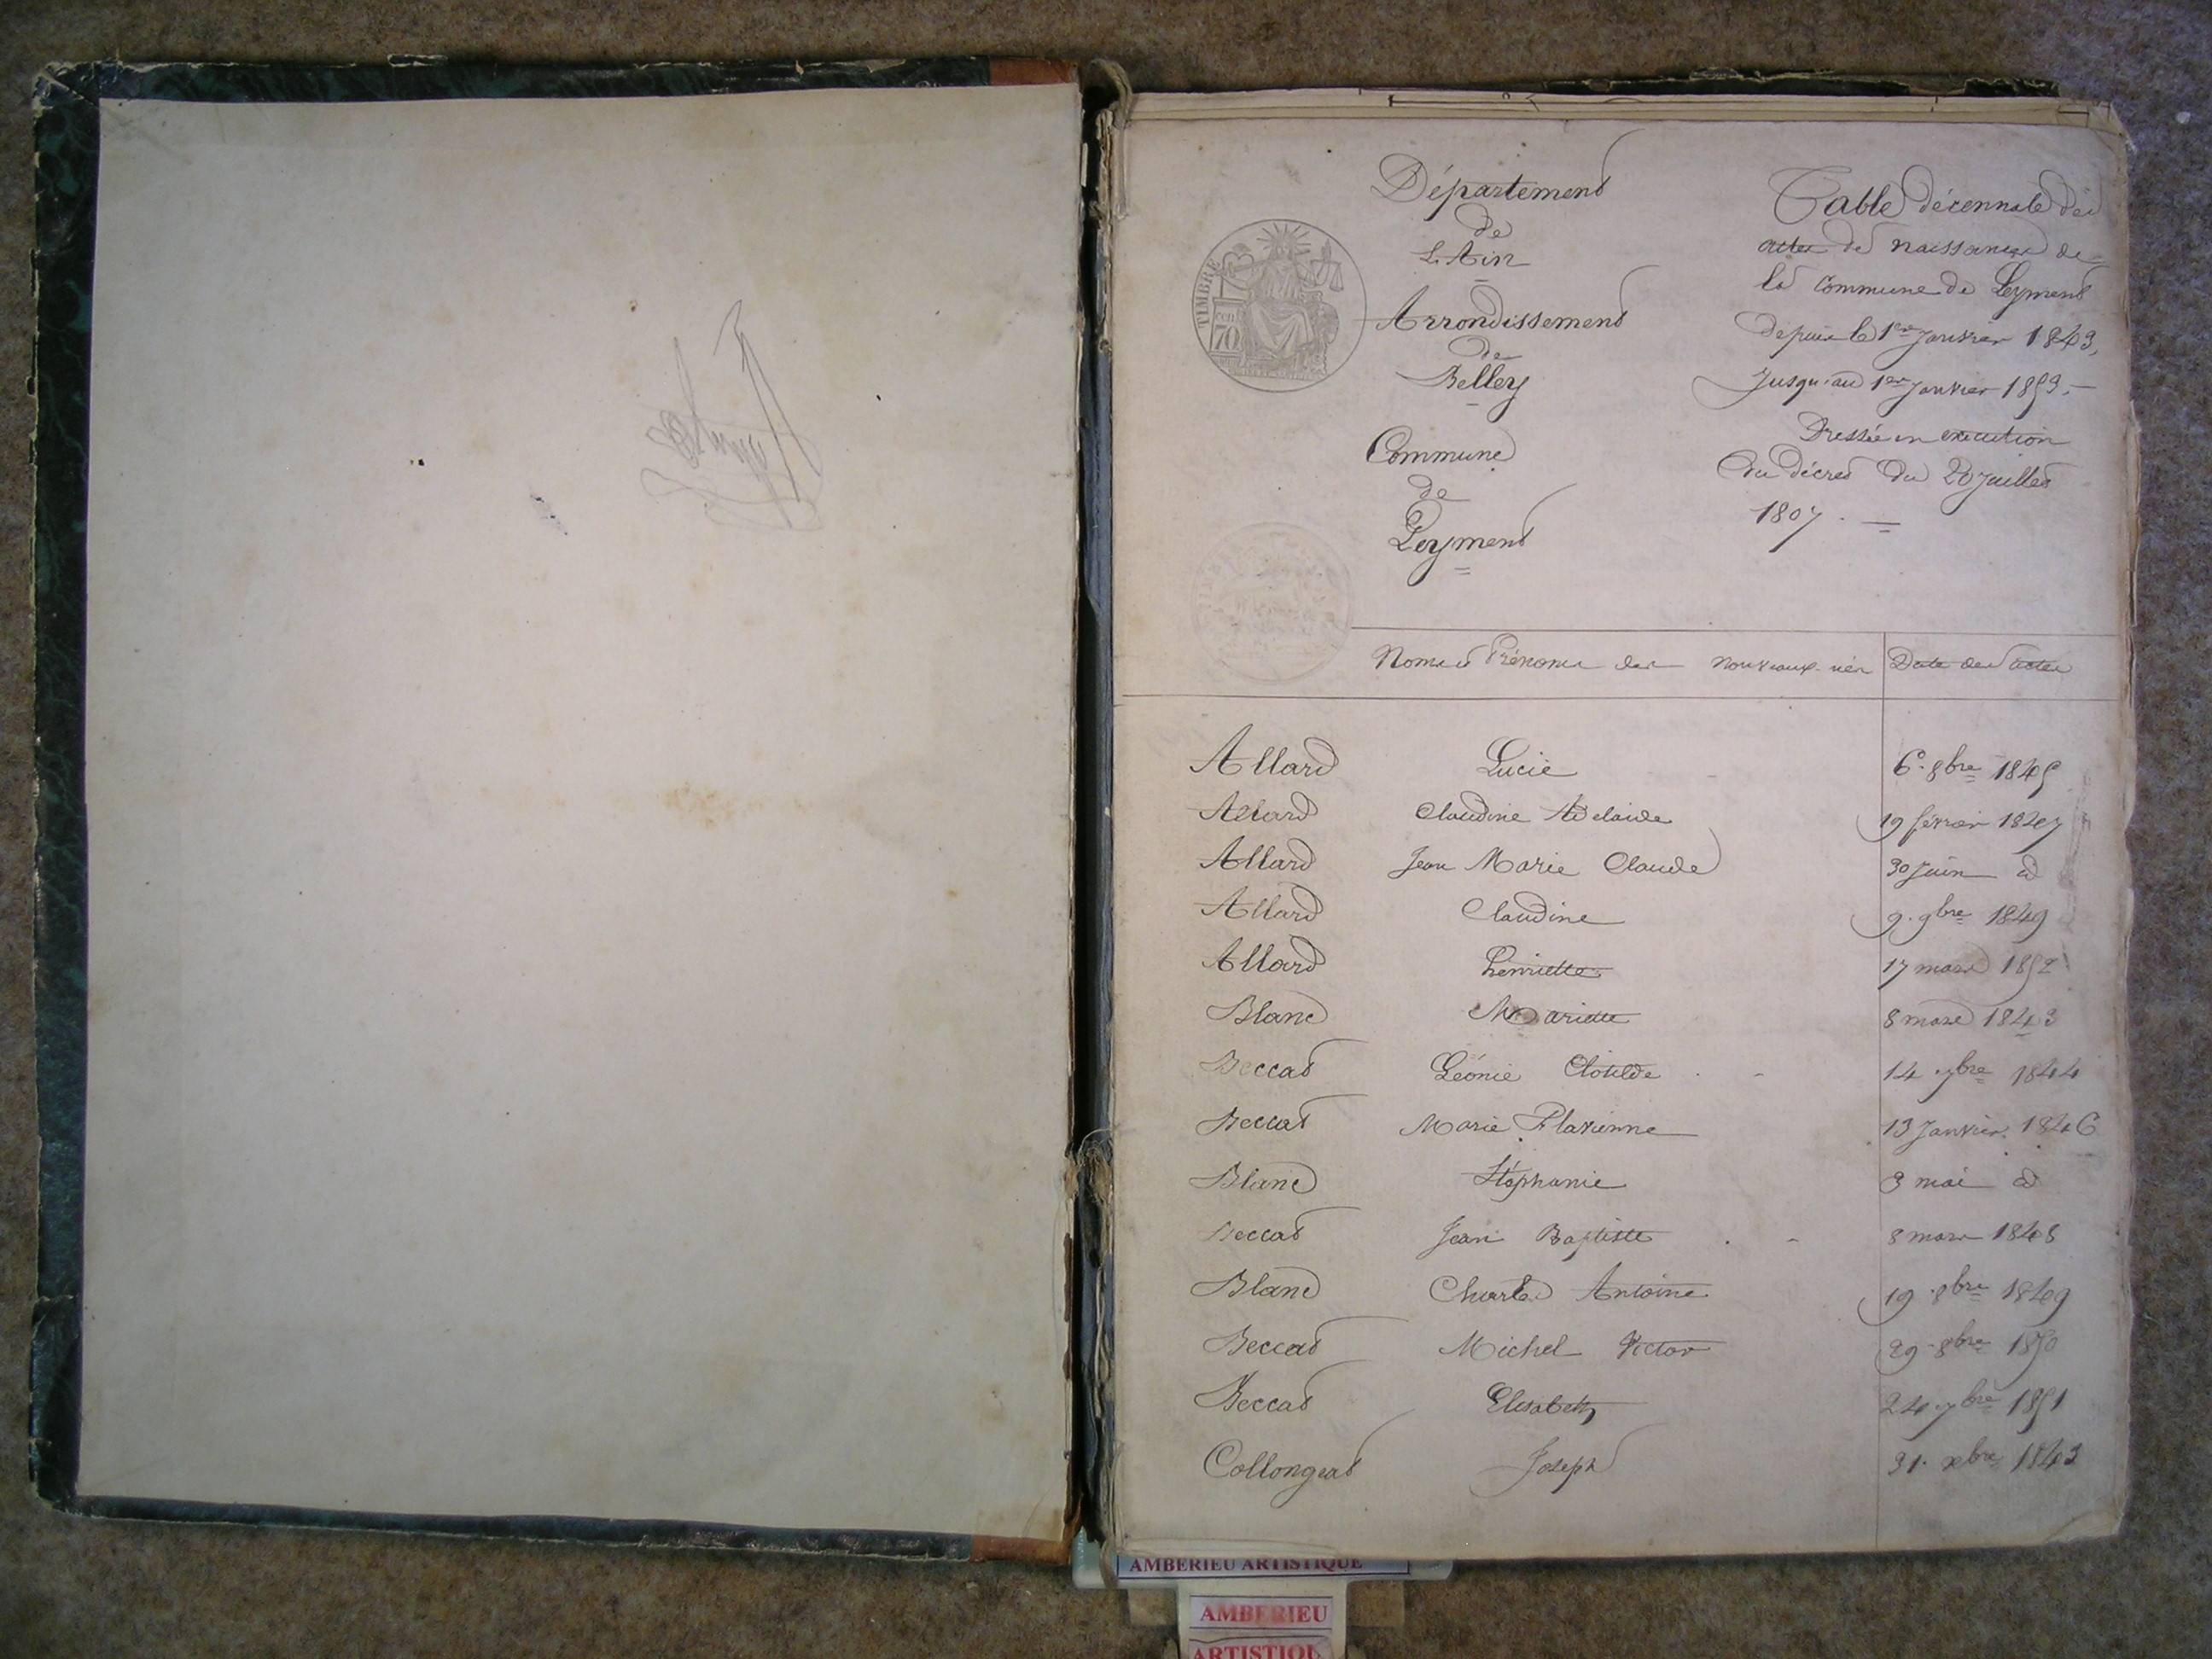 Département
de
L'Ain
Arrondissement
de
Belley
Commune
de
Leyment
TIMBRE
70
Table décennale des
actes de naissances de
la commune de Leyment
depuis le 1er Janvier 1843,
Jusqu'au 1er Janvier 1853.
Dressée en exécution
du décret du 20 Juillet
1807.
Noms et Prénoms des nouveaux-nés Date des actes
Allard Lucie 6. 8bre 1845
Allard Claudine Adelaide 19 février 1847
Allard Jean Marie Claude 30 Juin id
Allard Claudine 9. 9bre 1849
Allard henriette 17 mars 1852
Blanc Mariette 8 mars 1843
Beccat Léonie Clotilde 14. 7bre 1844
Beccat Marie Flavienne 13 Janvier 1846
Blanc Stéphanie 3 mai id
Beccat Jean Baptiste 8 mars 1848
Blanc Charles Antoine 19. 8bre 1849
Beccat Michel Victor 29. 8bre 1850
Beccat Elisabeth 24. 7bre 1851
Collongeat Joseph 31. xbre 1843
AMBERIEU ARTISTIQUE
AMBERIEU
ARTISTIQU